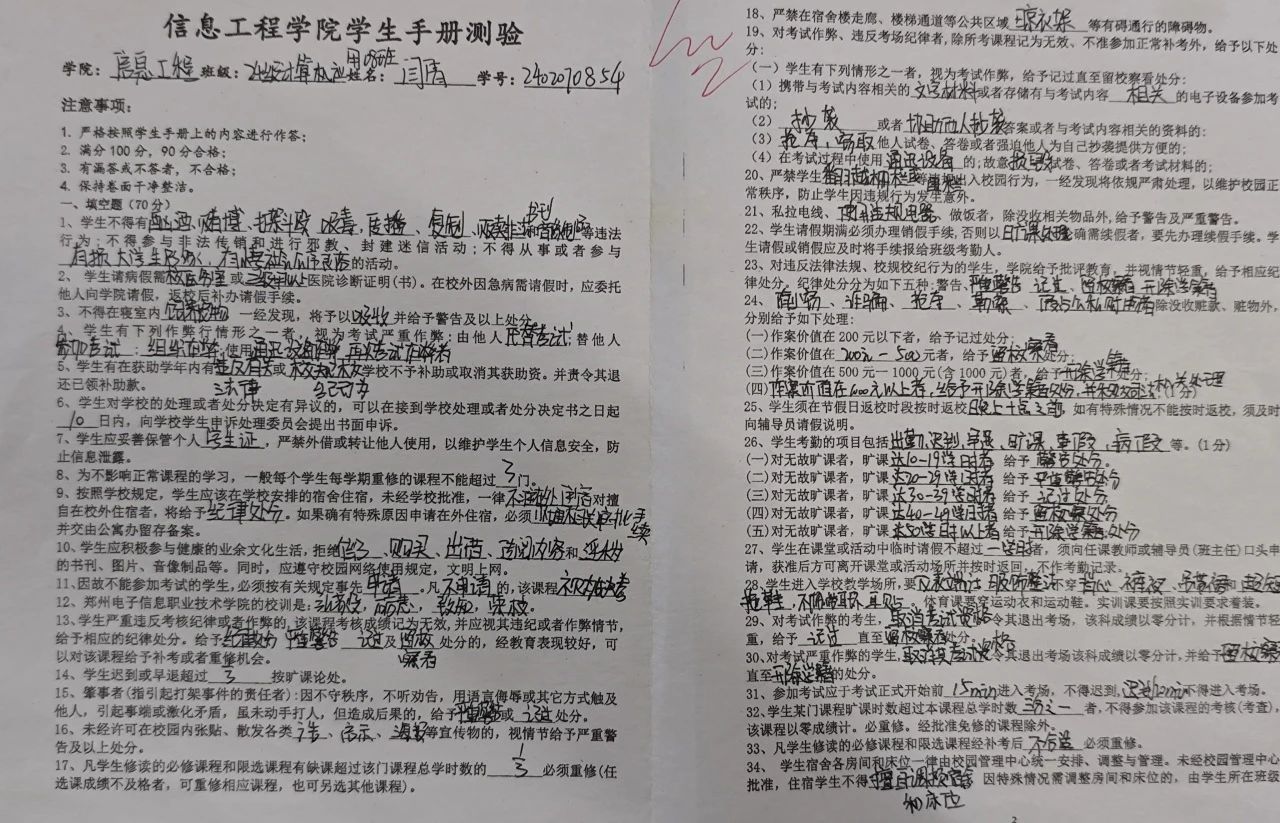 信息工程学院学生手册测验
学院：信息工程 班级： 姓名： 学号：2402070854
注意事项：
1. 严格按照学生手册上的内容进行作答；
2. 满分100分，90分合格；
3. 有漏答或不答者，不合格；
4. 保持卷面干净整洁。
一、填空题（70分）
1、学生不得有酗酒、赌博、打架斗殴、吸毒，传播、复制、等违法
行为；不得参与非法传销和进行邪教、封建迷信活动；不得从事或者参与
有损大学生形象、有悖社会公序良俗的活动。
2、 学生请病假需校医务室或三级甲以上医院诊断证明(书)。在校外因急病需请假时，应委托
他人向学院请假，返校后补办请假手续。
3、不得在寝室内饲养宠物 一经发现，将予以收并给予警告及以上处分。
4、学生有下列作弊行情形之一者，视为考试严重作弊：由他人代替考试；替他人
参加考试；组织作弊；使用通讯设备作弊，再次考试作弊者
5、学生有在获助学年内有违反有关或校规校纪学校不予补助或取消其获助资。并责令其退
法律
还已领补助款。
6、学生对学校的处理或者处分决定有异议的，可以在接到学校处理或者处分决定书之日起
10日内，向学校学生申诉处理委员会提出书面申诉。
7、学生应妥善保管个人学生证，严禁外借或转让他人使用，以维护学生个人信息安全，防
止信息泄露。
8、为不影响正常课程的学习，一般每个学生每学期重修的课程不能超过3门。
9、按照学校规定，学生应该在学校安排的宿舍住宿，未经学校批准，一律不在校外住宿对擅
自在校外住宿者，将给予纪律处分。如果确有特殊原因申请在外住宿，必须手
续
并交由公寓办留存备案。
10、学生应积极参与健康的业余文化生活，拒绝、购买、出借、传阅内容和淫秽
的书刊、图片、音像制品等。同时，应遵守校园网络使用规定，文明上网。
11、因故不能参加考试的学生，必须按有关规定事先申请。凡不申请的，该课程
12、郑州电子信息职业技术学院的校训是：
13、学生严重违反考核纪律或者作弊的，该课程考核成绩记为无效，并应视其违纪或者作弊情节，
给予相应的纪律处分。给予纪律处分 严重警告 记过及留校处分的，经教育表现较好，可
察看
以对该课程给予补考或者重修机会。
14、学生迟到或早退超过3按旷课论处。
15、肇事者(指引起打架事件的责任者)：因不守秩序，不听劝告，用语言侮辱或其它方式触及
他人，引起事端或激化矛盾，虽未动手打人，但造成后果的，给予严重警告或记过处分。
16、未经许可在校园内张贴、散发各类广告、启示、海报等宣传物的，视情节给予严重警
告及以上处分。
17、凡学生修读的必修课程和限选课程有缺课超过该门课程总学时数的1/3必须重修(任
选课成绩不及格者，可重修相应课程，也可另选其他课程)。
18、严禁在宿舍楼走廊、楼梯通道等公共区域晾衣架等有碍通行的障碍物。
19、对考试作弊、违反考场纪律者,除所考课程记为无效、不准参加正常补考外，给予以下处
分：
(一)学生有下列情形之一者，视为考试作弊，给予记过直至留校察看处分：
(1)携带与考试内容相关的文字材料或者存储有与考试内容相关的电子设备参加考
试的；
(2)抄袭或者协助他人抄袭答案或者与考试内容相关的资料的；
(3)抢夺、窃取他人试卷、答卷或者强迫他人为自己抄袭提供方便的；
(4)在考试过程中使用通讯设备的；故意损毁试卷、答卷或者考试材料的；
20、严禁学生翻越栅栏或等违规出入校园行为，一经发现将依规严肃处理，以维护校园正
常秩序，防止学生因违规行为发生意外。
21、私拉电线、使用违规电器、做饭者，除没收相关物品外，给予警告及严重警告。
22、学生请假期满必须办理销假手续，否则以旷课处理确需续假者，要先办理续假手续。学
生请假或销假应及时将手续报给班级考勤人。
23、对违反法律法规、校规校纪行为的学生，学院给予批评教育，并视情节轻重，给予相应纪
律处分。纪律处分分为如下五种：警告、严重警告 记过、留校察看 开除学籍
24、 诈骗、抢夺、勒索、除没收赃款、赃物外，
分别给予如下处理：
(一)作案价值在200元以下者，给予记过处分；
(二)作案价值在200元－500元者，给予留校察看处分；
(三)作案价值在500元－1000元(含1000元)者，给予开除学籍处分；
(四)作案价值在1000元以上者，给予开除学籍处分，并相关处理(1分)
25、学生须在节假日返校时段按时返校晚上十点之前，如有特殊情况不能按时返校，须及时
向辅导员请假说明。
26、学生考勤的项目包括出勤、迟到、早退、旷课、事假、病假等。(1分)
(一)对无故旷课者，旷课达10-19学时者 给予警告处分。
(二)对无故旷课者，旷课达20-29学时者 给予严重警告处分
(三)对无故旷课者，旷课达30-39学时者 给予记过处分
(四)对无故旷课者，旷课达40-49学时者 给予留校察看处分
(五)对无故旷课者，旷课达50学时以上者 给予开除学籍处分
27、学生在课堂或活动中临时请假不超过一学时者，须向任课教师或辅导员(班主任)口头申
请，获准后方可离开课堂或活动场所并按时返回，不作考勤记录。
28、学生进入学校教学场所，要仪表端庄 服饰整洁不穿背心 裤衩、吊带裙和超短
拖鞋，，体育课要穿运动衣和运动鞋。实训课要按照实训要求着装。
29、对考试作弊的考生，取消考试资格令其退出考场，该科成绩以零分计，并根据情节轻
重，给予记过直至留校察看处分。
30、对考试严重作弊的学生,取消考试资格令其退出考场该科成绩以零分计,并给予留校察
直至开除学籍的处分。
31、参加考试应于考试正式开始前15min进入考场，不得迟到,不得进入考场。
32、学生某门课程旷课时数超过本课程总学时数三分之一者，不得参加该课程的考核(考查)，
该课程以零成绩计。必重修。经批准免修的课程除外。
33、凡学生修读的必修课程和限选课程经补考后必须重修。
34、 学生宿舍各房间和床位一律由校园管理中心统一安排、调整与管理。未经校园管理中心
批准，住宿学生不得擅自调换宿舍因特殊情况需调整房间和床位的，由学生所在班级
和床位
2